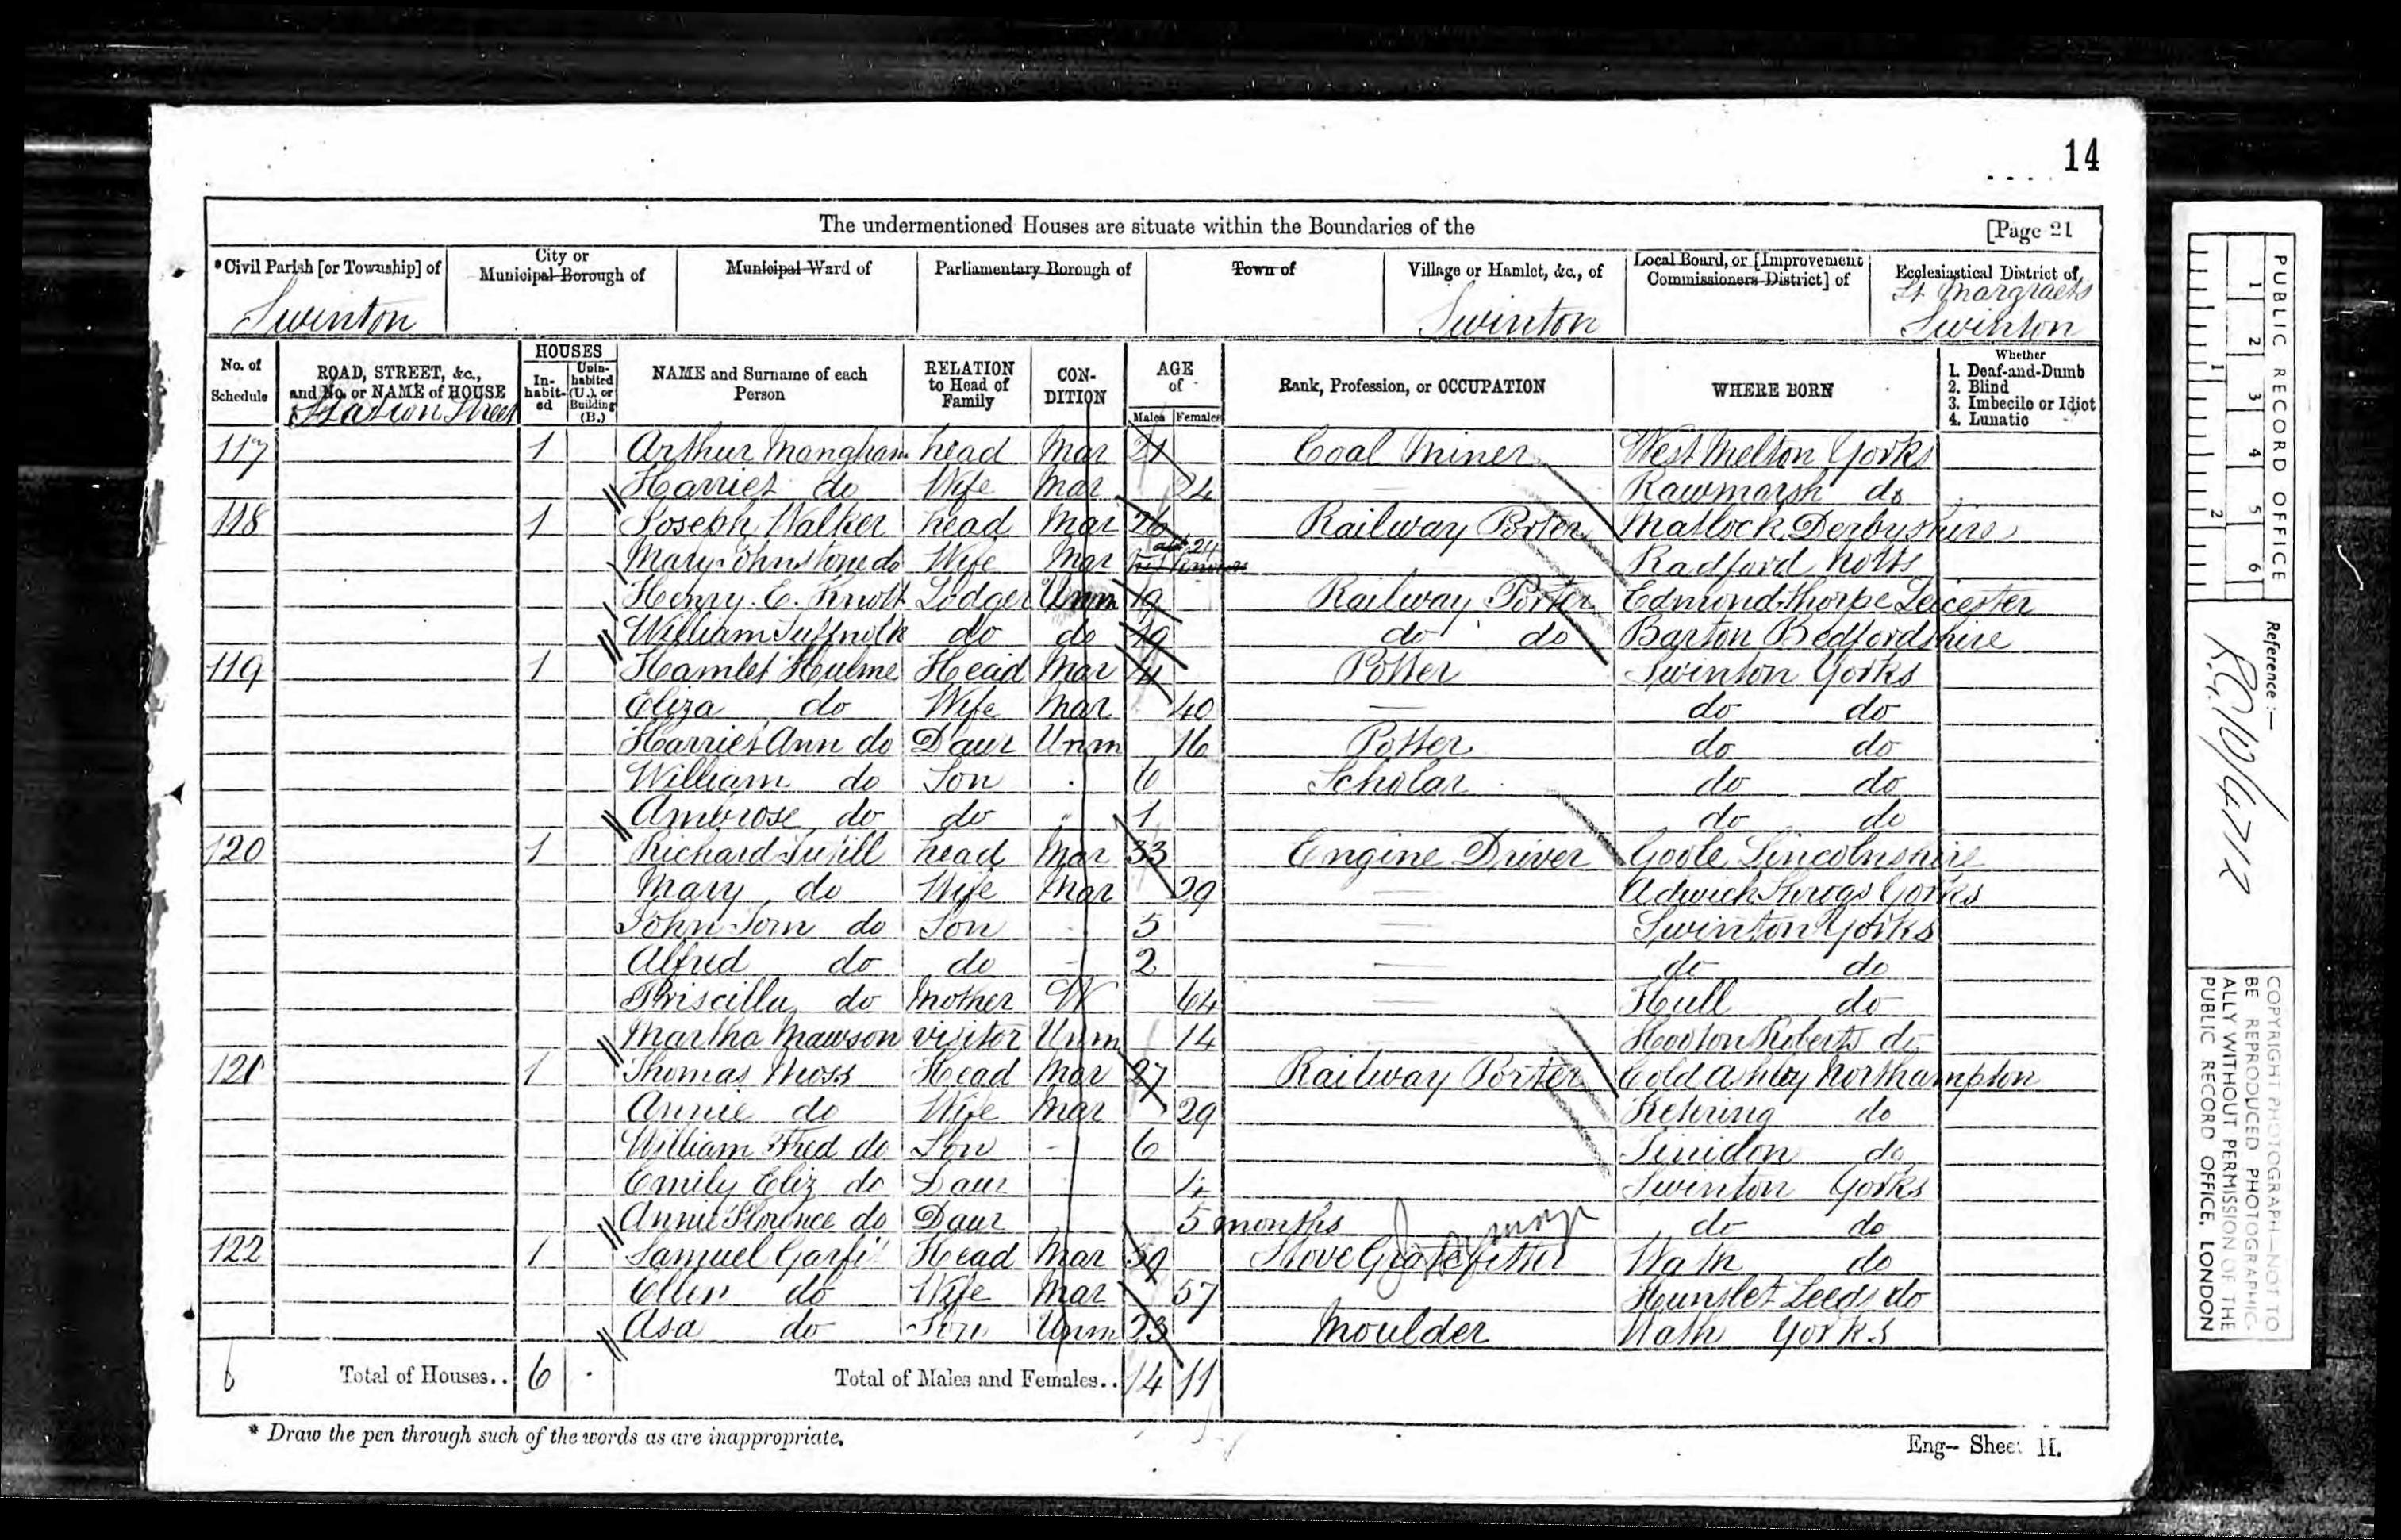 14
The undermentioned Houses are situate within the Boundaries of the [Page 21
*Civil Parish [or Township] of City or Municipal Borough of Municipal Ward of Parliamentary Borough of Town of Village or Hamlet, &c., of Local Board, or [Improvement Commissioners District] of Ecclesiastical District of
Swinton Swinton St Margraets Swinton
No. of Schedule ROAD, STREET, &c., and No. or NAME of HOUSE HOUSES In-habit-ed Unin-habited (U.), or Building (B.) NAME and Surname of each Person RELATION to Head of Family CON-DITION AGE of Males Females Rank, Profession, or OCCUPATION WHERE BORN Whether 1. Deaf-and-Dumb 2. Blind 3. Imbecile or Idiot 4. Lunatic
Station Street
117 1 Arthur Mangham head Mar 21 Coal Miner West Melton Yorks
Harriet do Wife Mar 24 Rawmarsh do
118 1 Joseph Walker head Mar 26 Railway Porter Matlock Derbyshire
Mary Johnstone do Wife Mar 24 Radford Notts
Henry. E. Knott Lodger Unm 19 Railway Porter Edmondthorpe Leicester
William do do 19 do do Barton Bedfordshire
119 1 Hamlet Hulme Head Mar 41 Potter Swinton Yorks
Eliza do Wife Mar 40 do do
Harriet Ann do Daur Unm 16 Potter do do
William do Son 6 Scholar do do
Ambrose do do 1 do do
120 1 Richard head Mar 33 Engine Driver Goole Lincolnshire
Mary do Wife Mar 29 Adwick Yorks
John Tom do Son 5 Swinton Yorks
Alfred do do 2 do do
Priscilla do Mother W 64 Hull do
Martha Mawson visitor Unm 14 Hooton Roberts do
121 1 Thomas Moss Head Mar 27 Railway Porter Cold Ashby Northampton
Annie do Wife Mar 29 Kettering do
William Fred do Son 6 do
Emily Eliz do Daur 4 Swinton Yorks
Annie Florence do Daur 5 months do do
122 1 Samuel Garfit Head Mar 59 Stove Grate fitter Wath do
Ellen do Wife Mar 57 Hunslet Leeds do
Asa do Son Unm 23 Moulder Wath Yorks
6 Total of Houses.. 6 Total of Males and Females.. 14 11
* Draw the pen through such of the words as are inappropriate.
Eng— Sheet H.
PUBLIC RECORD OFFICE
1 2 3 4 5 6
1 2
Reference:—
R.G. 10/4712
COPYRIGHT PHOTOGRAPH—NOT TO
BE REPRODUCED PHOTOGRAPHIC-
ALLY WITHOUT PERMISSION OF THE
PUBLIC RECORD OFFICE, LONDON